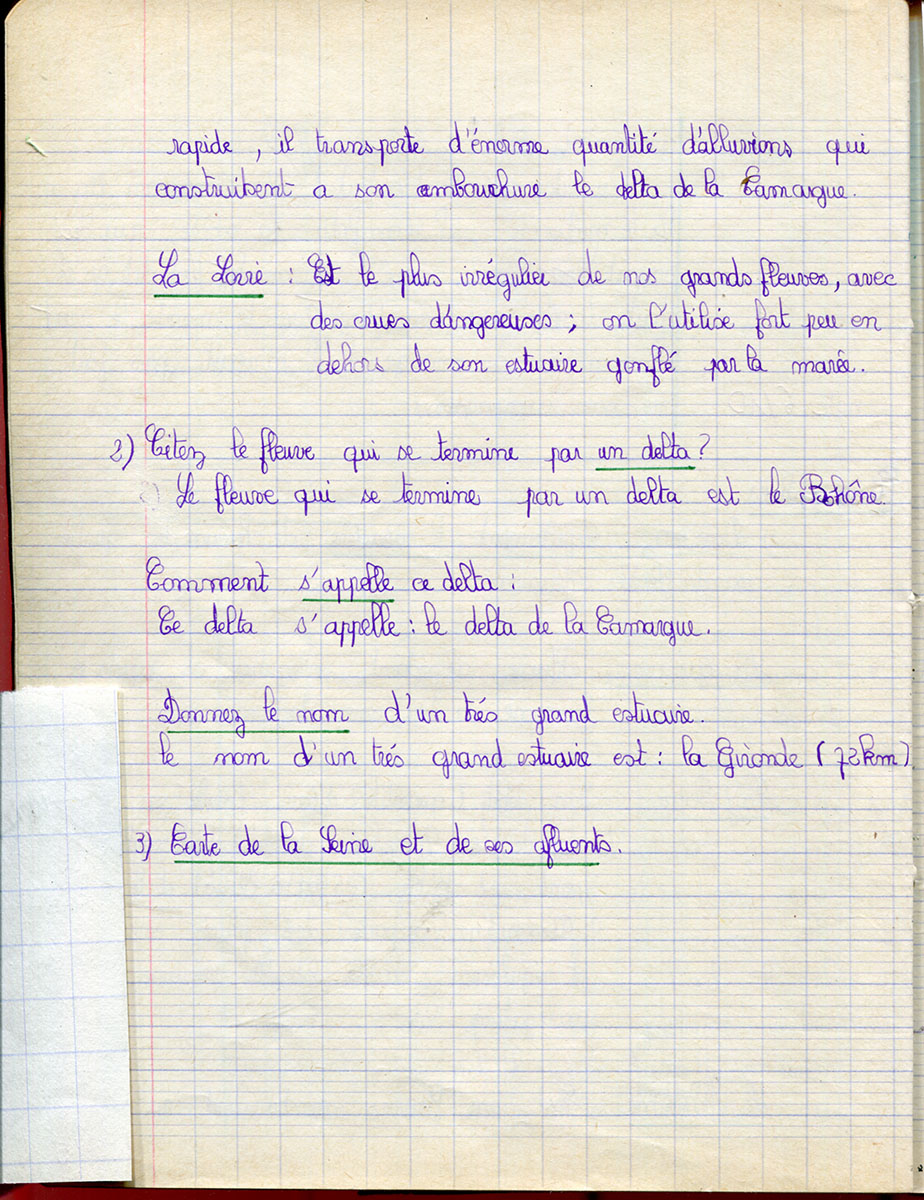 rapide, il transporte d'énorme quantité d'alluvions qui
construisent a son embouchure le delta de la Camargue.
La Loire : Est le plus irrégulier de nos grands fleuves, avec
des crues dangereuses ; on l'utilise fort peu en
dehors de son estuaire gonflé par la marée.
2) Citez le fleuve qui se termine par un delta ?
Le fleuve qui se termine par un delta est le Rhône.
Comment s'appelle ce delta :
Ce delta s'appelle : le delta de la Camargue.
Donnez le nom d'un trés grand estuaire.
le nom d'un trés grand estuaire est : la Gironde (72km)
3) Carte de la Seine et de ses afluents.